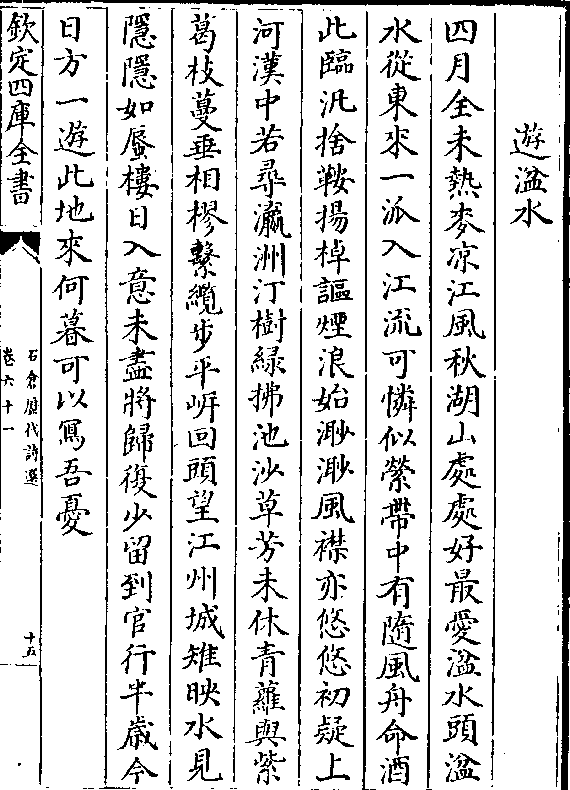 遊湓水
四月全未熱麥凉江風秋湖山處處好最愛湓水頭湓
水從東來一派入江流可憐似縈帶中有隨風舟命酒
此臨汎捨鞍揚棹謳煙浪始渺渺風襟亦悠悠初疑上
河漢中若尋瀛洲汀樹緑拂池沙草芳未休青蘿與紫
葛枝蔓垂相樛繫纜步平岸回頭望江州城雉映水見
隱隱如蜃樓日入意未盡將歸復少留到官行半歲今
日方一遊此地來何暮可以冩吾憂
欽定四庫全書
石倉歴代詩選
卷六十一
十五